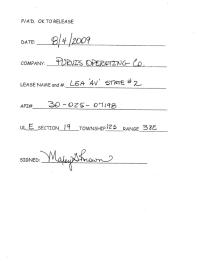 P/A'D. OK TO RELEASE
DATE: 8/4/2009
COMPANY: PURVIS OPERATING Co.
LEASE NAME and #: LEA 'AV' STATE #2
API# 30-025-07198
UL E SECTION 19 TOWNSHIP 12S RANGE 38E
SIGNED: